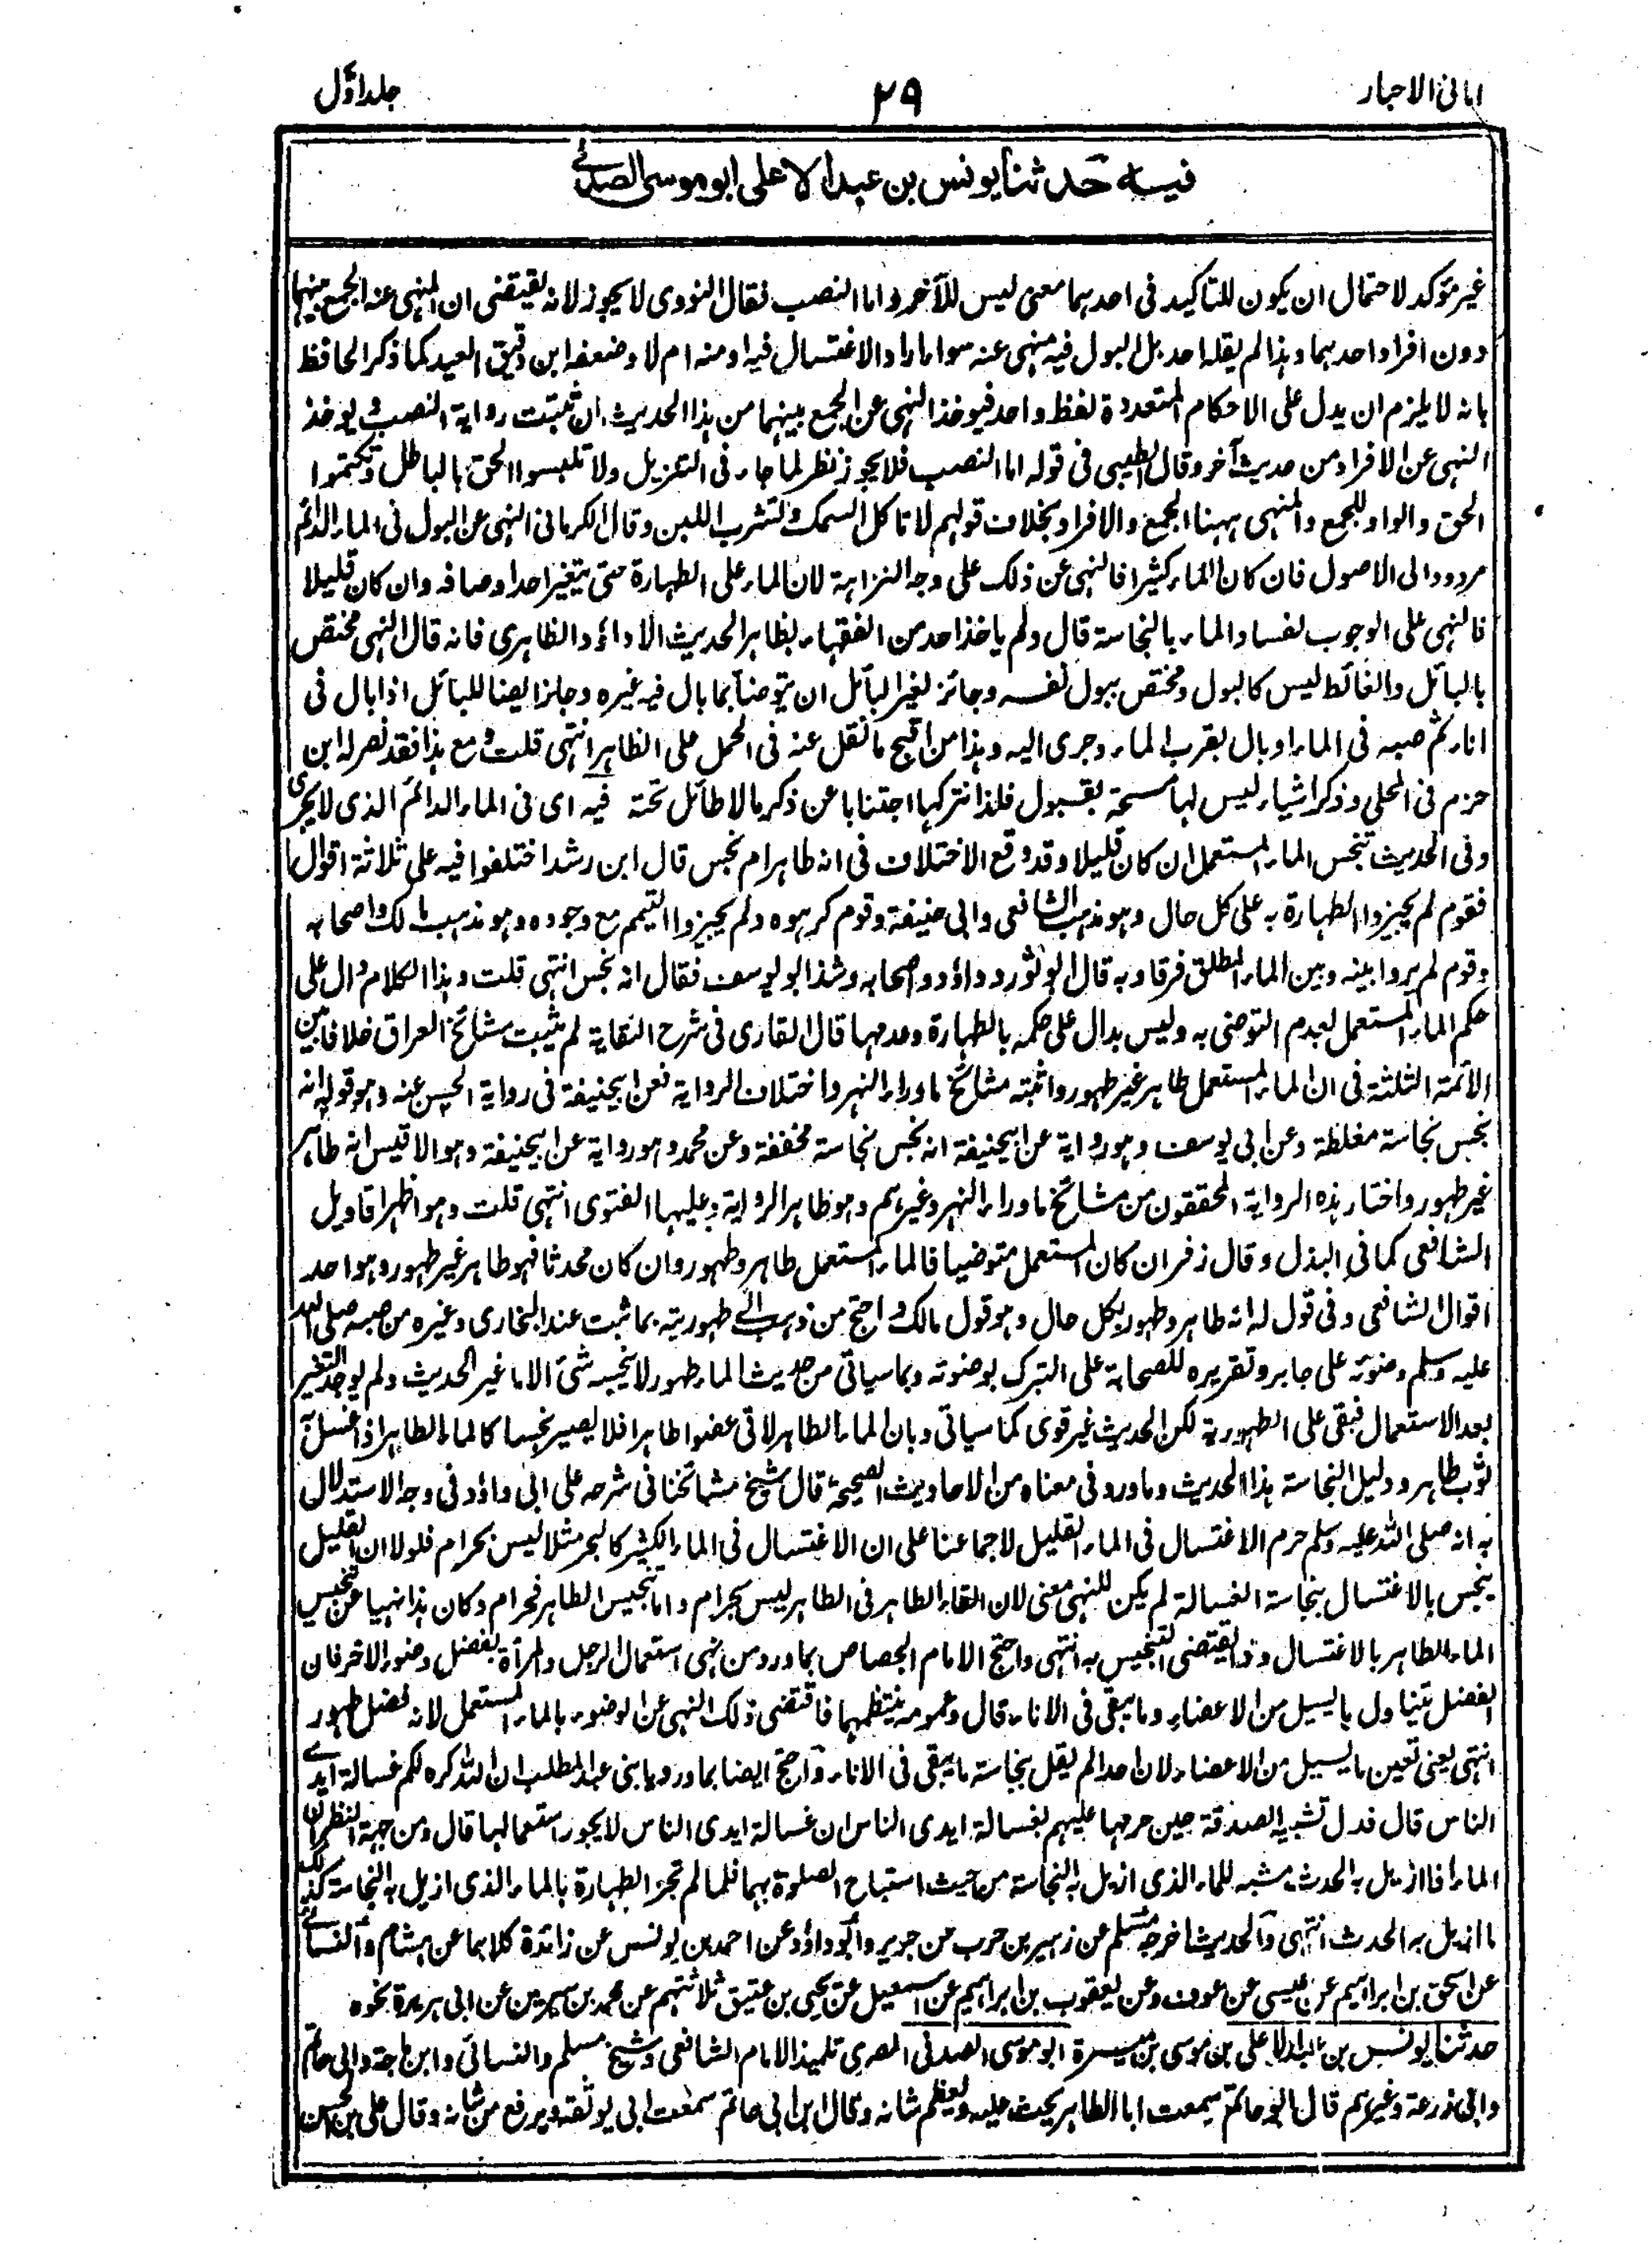 امانی الاحبار
٢٩
جلد اوّل
فیه حَدثنا یونس بن عبد الاعلی ابو موسی الصدفی
غیر مؤکد لاحتمال ان یکون للتاکید فی احدہما معنی لیس للآخر و اما النصب فقال النووی لا یجوز لانه یقتضی ان المنہی عنه الجمع بینہما
دون افراد احدہما وہذا لم یقله احد بل البول فیه منہی عنه سواء اراد الاغتسال فیه او منه ام لا وضعفه ابن دقیق العید کما ذکر الحافظ
بانه لا یلزم ان یدل علی الاحکام المتعددة لفظ واحد فیوخذ النہی عن الجمع بینہما من ہذا الحدیث ان ثبتت روایة النصب و یوخذ
النہی عن الافراد من حدیث آخر وقال الطیبی فی قوله اما النصب فلا یجوز نظر لما جاء فی التنزیل ولا تلبسوا الحق بالباطل وتکتموا
الحق والواو للجمع والمنہی ہہنا الجمع والافراد بخلاف قولہم لا تاکل السمک وتشرب اللبن وقال الکرمانی النہی عن البول فی الماء الدائم
مردود الی الاصول فان کان الماء کثیرا فالنہی عن ذلک علی وجه النزاہة لان الماء علی الطہارة حتی یتغیر احد اوصافه وان کان قلیلا
فالنہی علی الوجوب لفساد الماء بالنجاسة قال ولم یاخذ احد من الفقہاء بظاہر الحدیث الا داؤد الظاہری فانه قال النہی مختص
بالبائل والغائط لیس کالبول ومختص ببول نفسه وجائز لغیر البائل ان یتوضأ بما بال فیه غیره وجائز ایضا للبائل اذا بال فی
اناء ثم صبه فی الماء او بال بقرب الماء وجری الیه وہذا من اقبح ما نقل عنه فی الحمل علی الظاہر انتہی قلت و مع ہذا فقد نصر له ابن
حزم فی المحلی وذکر اشیاء لیس لہا مسحة بقبول فلذا نترکہا اجتنابا عن ذکر ما لا طائل تحته فیه ای فی الماء الدائم الذی لا یجری
وفی الحدیث تنجس الماء المستعمل ان کان قلیلا وقد وقع الاختلاف فی انه طاہر ام نجس قال ابن رشد اختلفوا فیه علی ثلاثة اقوال
فقوم لم یجیزوا الطہارة به علی کل حال وہو مذہب الشافعی وابی حنیفة وقوم کرہوه ولم یجیزوا التیمم مع وجوده وہو مذہب مالک واصحابه
وقوم لم یروا بینه وبین الماء المطلق فرقا وبه قال ابو ثور وداؤد واصحابه وشذ ابو یوسف فقال انه نجس انتہی قلت وہذا الکلام دال علی
حکم الماء المستعمل بعدم التوضی به ولیس بدال علی حکمه بالطہارة وعدمہا قال القاری فی شرح النقایة لم یثبت مشائخ العراق خلافا بین
الائمة الثلثة فی ان الماء المستعمل طاہر غیر طہور واثبته مشائخ ما وراء النہر واختلاف الروایة فعن ابیحنیفة فی روایة الحسن عنه وہو قوله انه
نجس نجاسة مغلظة وعن ابی یوسف وہو روایة عن ابیحنیفة انه نجس نجاسة مخففة وعن محمد وہو روایة عن ابیحنیفة وہو الاقیس انه طاہر
غیر طہور واختار ہذه الروایة المحققون من مشائخ ما وراء النہر وغیرہم وہو ظاہر الروایة وعلیہا الفتوی انتہی قلت وہو اظہر اقاویل
الشافعی کما فی البذل وقال زفر ان کان المستعمل متوضیا فالماء المستعمل طاہر وطہور وان کان محدثا فہو طاہر غیر طہور وہو احد
اقوال الشافعی وفی قول له انه طاہر وطہور بکل حال وہو قول مالک و احتج من ذہب الی طہوریته بما ثبت عند البخاری وغیره من صبه صلی الله
علیه وسلم وضوئه علی جابر وتقریره للصحابة علی التبرک بوضوئه وبما سیاتی من حدیث الماء طہور لا ینجسه شیٔ الا ما غیر الحدیث ولم یوجد التغیر
بعد الاستعمال فبقی علی الطہوریة لکن الحدیث غیر قوی کما سیاتی وبان الماء الطاہر لاقی عضوا طاہرا فلا یصیر نجسا کالماء الطاہر اذا غسل به
ثوب طاہر ودلیل النجاسة ہذا الحدیث وما ورد فی معناه من الاحادیث الصحیحة قال شیخ مشائخنا فی شرحه علی ابی داؤد فی وجه الاستدلال
به انه صلی الله علیه وسلم حرم الاغتسال فی الماء القلیل لاجماعنا علی ان الاغتسال فی الماء الکثیر کالبحر مثلا لیس بحرام فلولا ان القلیل
ینجس بالاغتسال بنجاسة الغسالة لم یکن للنہی معنی لان القاء الطاہر فی الطاہر لیس بحرام واما تنجیس الطاہر فحرام وکان ہذا نہیا عن تنجیس
الماء الطاہر بالاغتسال وذا یقتضی التنجیس به انتہی واحتج الامام الجصاص بما ورد من نہی استعمال الرجل والمرأة بفضل وضوء الآخر فان
الفضل یتناول ما یسیل من الاعضاء وما یبقی فی الاناء قال وعمومه ینتظمہما فاقتضی ذلک النہی عن الوضوء بالماء المستعمل لانه فضل طہور
انتہی یعنی تعین ما یسیل من الاعضاء لان احدا لم یقل بنجاسة ما یبقی فی الاناء واحتج ایضا بما ورد یا بنی عبد المطلب ان الله کره لکم غسالة ایدی
الناس قال فدل تشبیه الصدقة حین حرمہا علیہم بغسالة ایدی الناس ان غسالة ایدی الناس لا یجوز استعمالہا قال ومن جہة النظر ان
الماء اذا ازیل به الحدث مشبه للماء الذی ازیل به النجاسة من حیث استباح الصلوة بہما فلما لم تجز الطہارة بالماء الذی ازیل به النجاسة کذلک
ما ازیل به الحدث انتہی والحدیث اخرجه مسلم عن زہیر بن حرب عن جریر وابو داؤد عن احمد بن یونس عن زائدة کلاہما عن ہشام والنسائی
عن اسحق بن ابراہیم عن عیسی عن عوف وعن یعقوب بن ابراہیم عن اسمعیل عن یحیی بن عتیق ثلاثتہم عن محمد بن سیرین عن ابی ہریرة نحوه
حدثنا یونس بن عبد الاعلی بن موسی بن میسرة ابو موسی الصدفی المصری تلمیذ الامام الشافعی وشیخ مسلم والنسائی وابن ماجة وابی حاتم
وابی زرعة وغیرہم قال ابو حاتم سمعت ابا الطاہر یحث علیه ویعظم شانه وقال ابن ابی حاتم سمعت ابی یوثقه ویرفع من شانه وقال علی بن الحسن